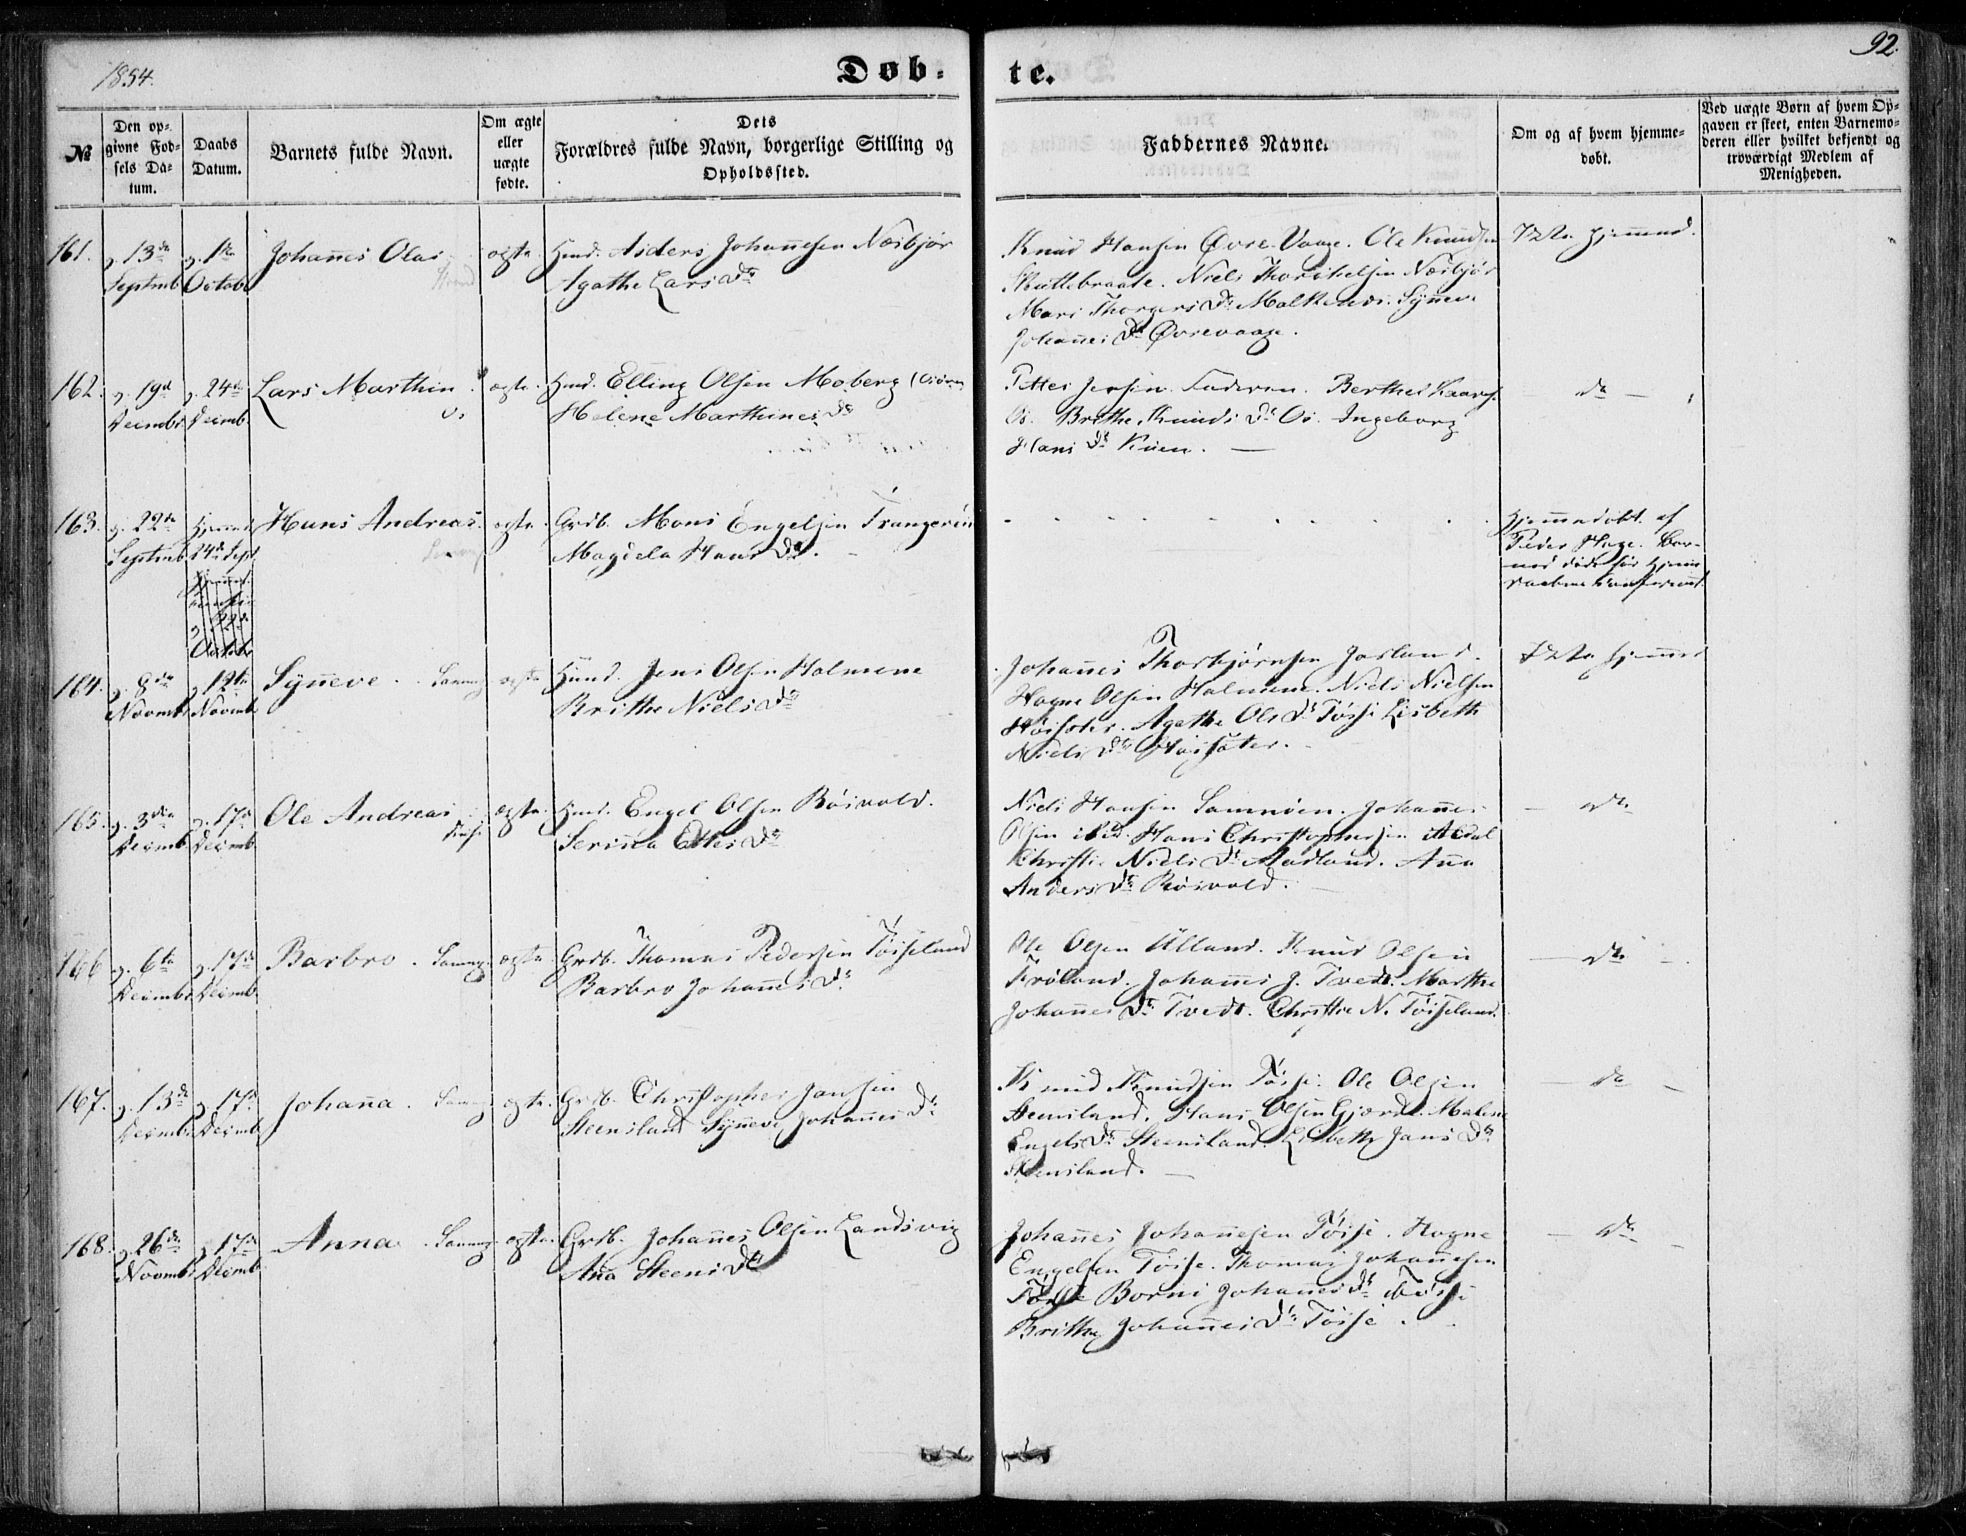 1854.
Døb-
te.
92.
№
Den op-
givne Fød-
sels Da-
tum.
Daabs
Datum.
Barnets fulde Navn.
Om ægte
eller
uægte
fødte.
Dets
Forældres fulde Navn, borgerlige Stilling og
Opholdssted.
Faddernes Navne.
Om og af hvem hjemme-
døbt.
Ved uægte Børn af hvem Op-
gaven er skeet, enten Barnemo-
deren eller hvilket bekjendt og
troværdigt Medlem af
Menigheden.
161.
13de
Septmb
1ste
Octob
Johannes Olai
Strand
ægte.
Huusm. Anders Johannesen Næsbjør
Agathe Larsdr
Knud Hansen Øvre Vaage. Ole Knudsen
Skuttebraate. Niels Thorkelsen Næsbjør
Mari Thorgersdr Malkenes. Synneve
Johannesdr Øvrevaage.
162.
19de
Decmbr
24de
Decmb.
Lars Marthin.
Os
ægte.
Huusm. Elling Olsen Moberg
Helene Marthinesdr
Petter Jensen Faderen. Berthel
Os. Brithe Knudsdr Os. Ingeborg
Hansdr Kuen.
do
163.
22de
Septmb
24de Sept
Octobr
Hans Andreas.
ægte.
Grdb. Mons Engelsen Trangerein
Magdela Hansdr.
Hjemmedøbt af
Peder Hage. Bar-
net døde før Hjemme-
daaben
164.
8de
Novmb
12te
Novmb
Synneve.
Samng
ægte
Huusm. Jens Olsen Holmene
Brithe Nielsdr
Johannes Thorbjørnsen Jarland.
Hogne Olsen Holmene. Niels Nielsen
Høisæter. Agathe Olsdr Tøsse Lisbeth
Nielsdr Høisæter.
165.
3die
Decmb
17de
Decmb.
Ole Andreas
Fuse
ægte.
Huusm. Engel Olsen Röivold.
Serinna Ellesdr
Niels Hansen Samnöen. Johannes
Olsen ibid. Hans Christophersen
Christi Nielsdr Madland. Anna
Andersdr Röivold.
do
166
6te
Decmbr
17de
Decmb.
Barbro.
Samng.
ægte
Grdb. Thomas Pedersen Töisseland
Barbro Johannesdr
Ole Olsen Ülland. Knud Olsen
Fröland. Johannes J. Tvedt. Marthe
Johannesdr Tvedt. Christie N. Töisseland.
do
167.
13de
Decmb.
17de
Decmb.
Johanna.
Samng
ægte.
Grdb. Christopher Jansen
Steensland Synneve Johannesdr
Knud Knudsen Tøsse. Ole Olsen
Steensland. Hans Olsen Gjærde. Malene
Engelsdr Steensland. Lisbeth Jansdr
Steensland.
do
168.
26de
Novmb
17de
Decmb
Anna.
Samng
ægte.
Grdb. Johannes Olsen Landsvig
Anna Steensdr
Johannes Johannesen Töise. Hogne
Engelsen Töise. Thomas Johannesen
Töise Borni Johannesdr Töise
Brithe Johannesdr Töise.
do